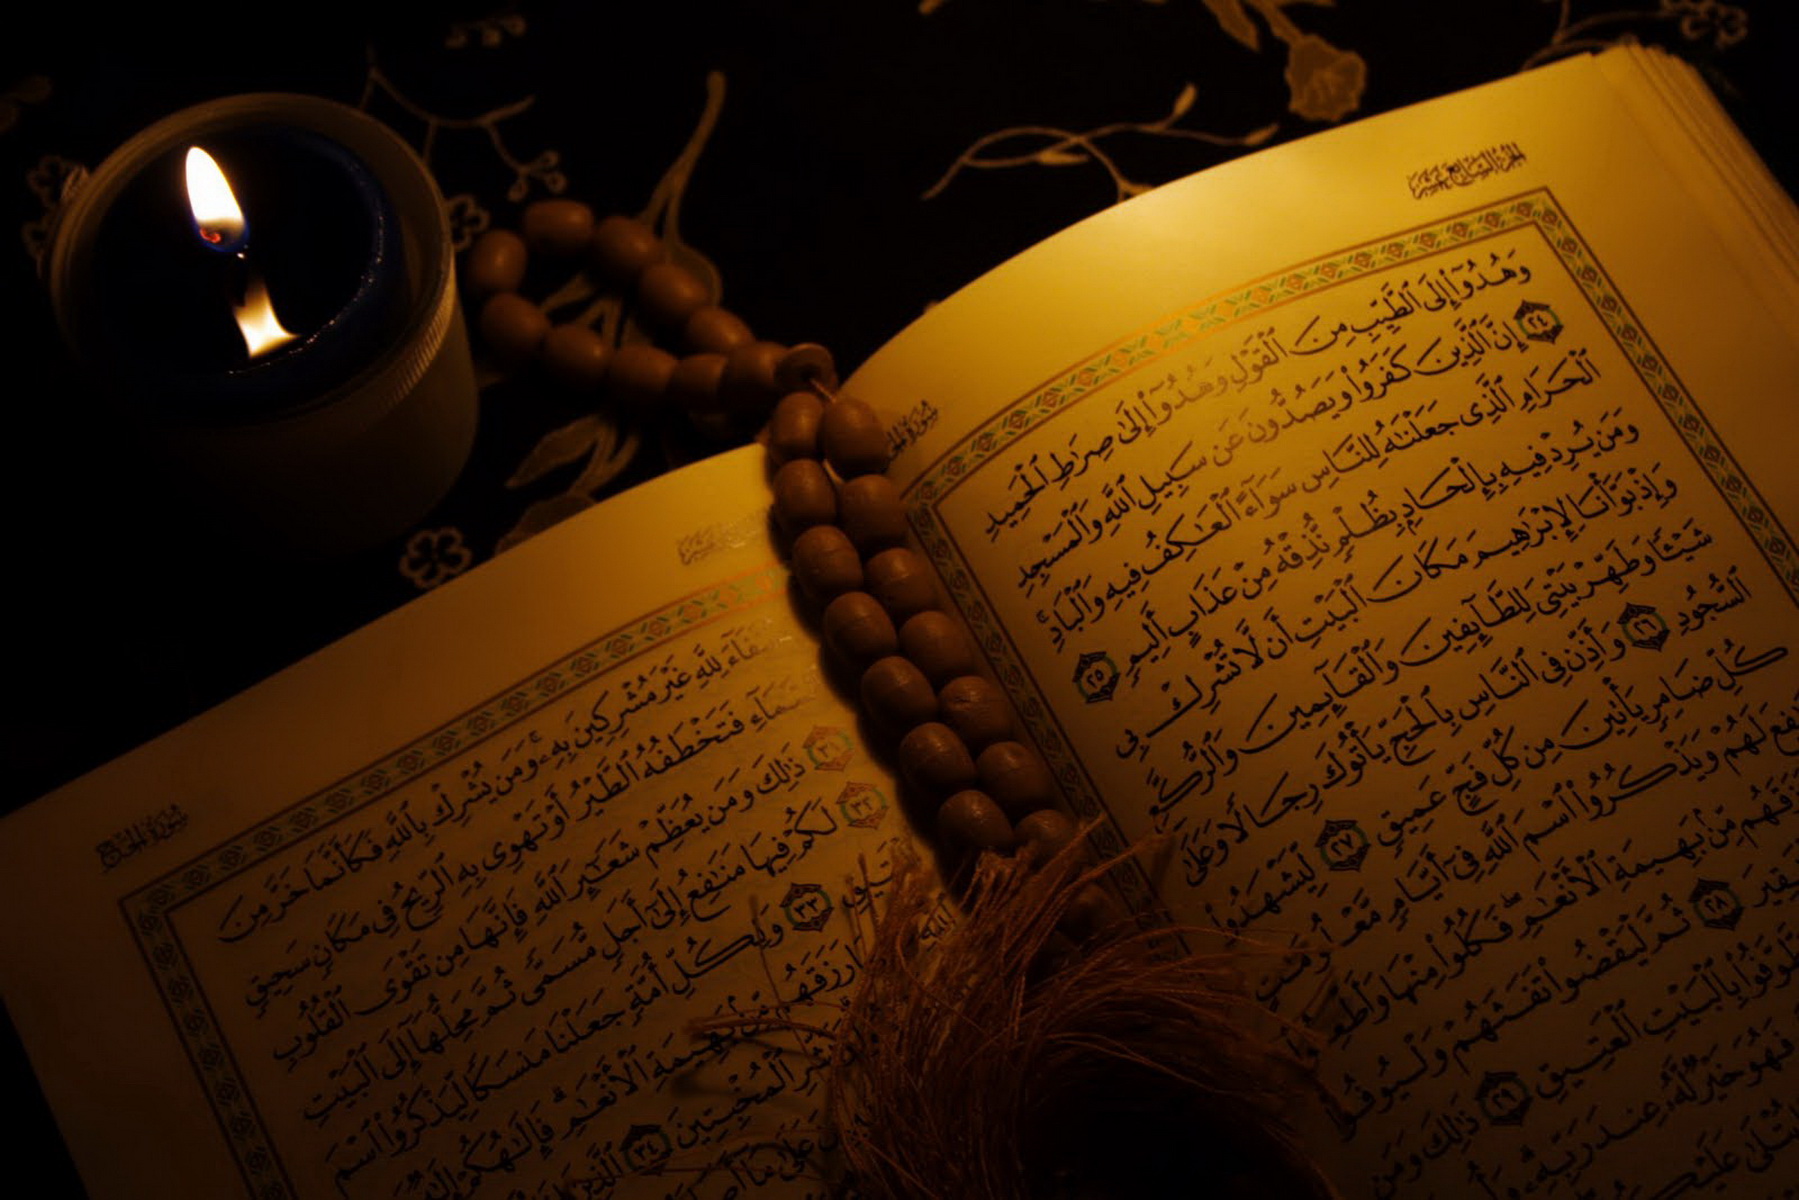 الجزء السابع عشر
وَهُدُوٓا۟ إِلَى ٱلطَّيِّبِ مِنَ ٱلْقَوْلِ وَهُدُوٓا۟ إِلَىٰ صِرَٰطِ ٱلْحَمِيدِ
٢٤ إِنَّ ٱلَّذِينَ كَفَرُوا۟ وَيَصُدُّونَ عَن سَبِيلِ ٱللَّهِ وَٱلْمَسْجِدِ
ٱلْحَرَامِ ٱلَّذِى جَعَلْنَٰهُ لِلنَّاسِ سَوَآءً ٱلْعَٰكِفُ فِيهِ وَٱلْبَادِ ۚ
وَمَن يُرِدْ فِيهِ بِإِلْحَادٍۭ بِظُلْمٍ نُّذِقْهُ مِنْ عَذَابٍ أَلِيمٍ ٢٥
وَإِذْ بَوَّأْنَا لِإِبْرَٰهِيمَ مَكَانَ ٱلْبَيْتِ أَن لَّا تُشْرِكْ بِى
شَيْـًٔا وَطَهِّرْ بَيْتِىَ لِلطَّآئِفِينَ وَٱلْقَآئِمِينَ وَٱلرُّكَّعِ
ٱلسُّجُودِ ٢٦ وَأَذِّن فِى ٱلنَّاسِ بِٱلْحَجِّ يَأْتُوكَ رِجَالًا وَعَلَىٰ
كُلِّ ضَامِرٍ يَأْتِينَ مِن كُلِّ فَجٍّ عَمِيقٍ ٢٧ لِّيَشْهَدُوا۟
لَهُمْ وَيَذْكُرُوا۟ ٱسْمَ ٱللَّهِ فِىٓ أَيَّامٍ مَّعْلُومَٰتٍ
مِّنۢ بَهِيمَةِ ٱلْأَنْعَٰمِ ۖ فَكُلُوا۟ مِنْهَا وَأَطْعِمُوا۟
٢٨ ثُمَّ لْيَقْضُوا۟ تَفَثَهُمْ وَلْيُوفُوا۟
بِٱلْبَيْتِ ٱلْعَتِيقِ ٢٩ ذَٰلِكَ وَمَن
فَهُوَ خَيْرٌ لَّهُۥ عِندَ رَبِّهِۦ ۗ
يُتْلَىٰ عَلَيْكُمْ
سورة الحج
لِلَّهِ غَيْرَ مُشْرِكِينَ بِهِۦ ۚ وَمَن يُشْرِكْ بِٱللَّهِ فَكَأَنَّمَا خَرَّ مِنَ
ٱلسَّمَآءِ فَتَخْطَفُهُ ٱلطَّيْرُ أَوْ تَهْوِى بِهِ ٱلرِّيحُ فِى مَكَانٍ سَحِيقٍ
٣١ ذَٰلِكَ وَمَن يُعَظِّمْ شَعَٰٓئِرَ ٱللَّهِ فَإِنَّهَا مِن تَقْوَى ٱلْقُلُوبِ
٣٢ لَكُمْ فِيهَا مَنَٰفِعُ إِلَىٰٓ أَجَلٍ مُّسَمًّى ثُمَّ مَحِلُّهَآ إِلَى ٱلْبَيْتِ
٣٣ وَلِكُلِّ أُمَّةٍ جَعَلْنَا مَنسَكًا لِّيَذْكُرُوا۟ ٱسْمَ
ٱللَّهِ رَزَقَهُم مِّنۢ بَهِيمَةِ ٱلْأَنْعَٰمِ ۗ فَإِلَٰهُكُمْ إِلَٰهٌ
ٱلْمُخْبِتِينَ ٣٤ ٱلَّذِينَ
عَلَىٰ مَآ